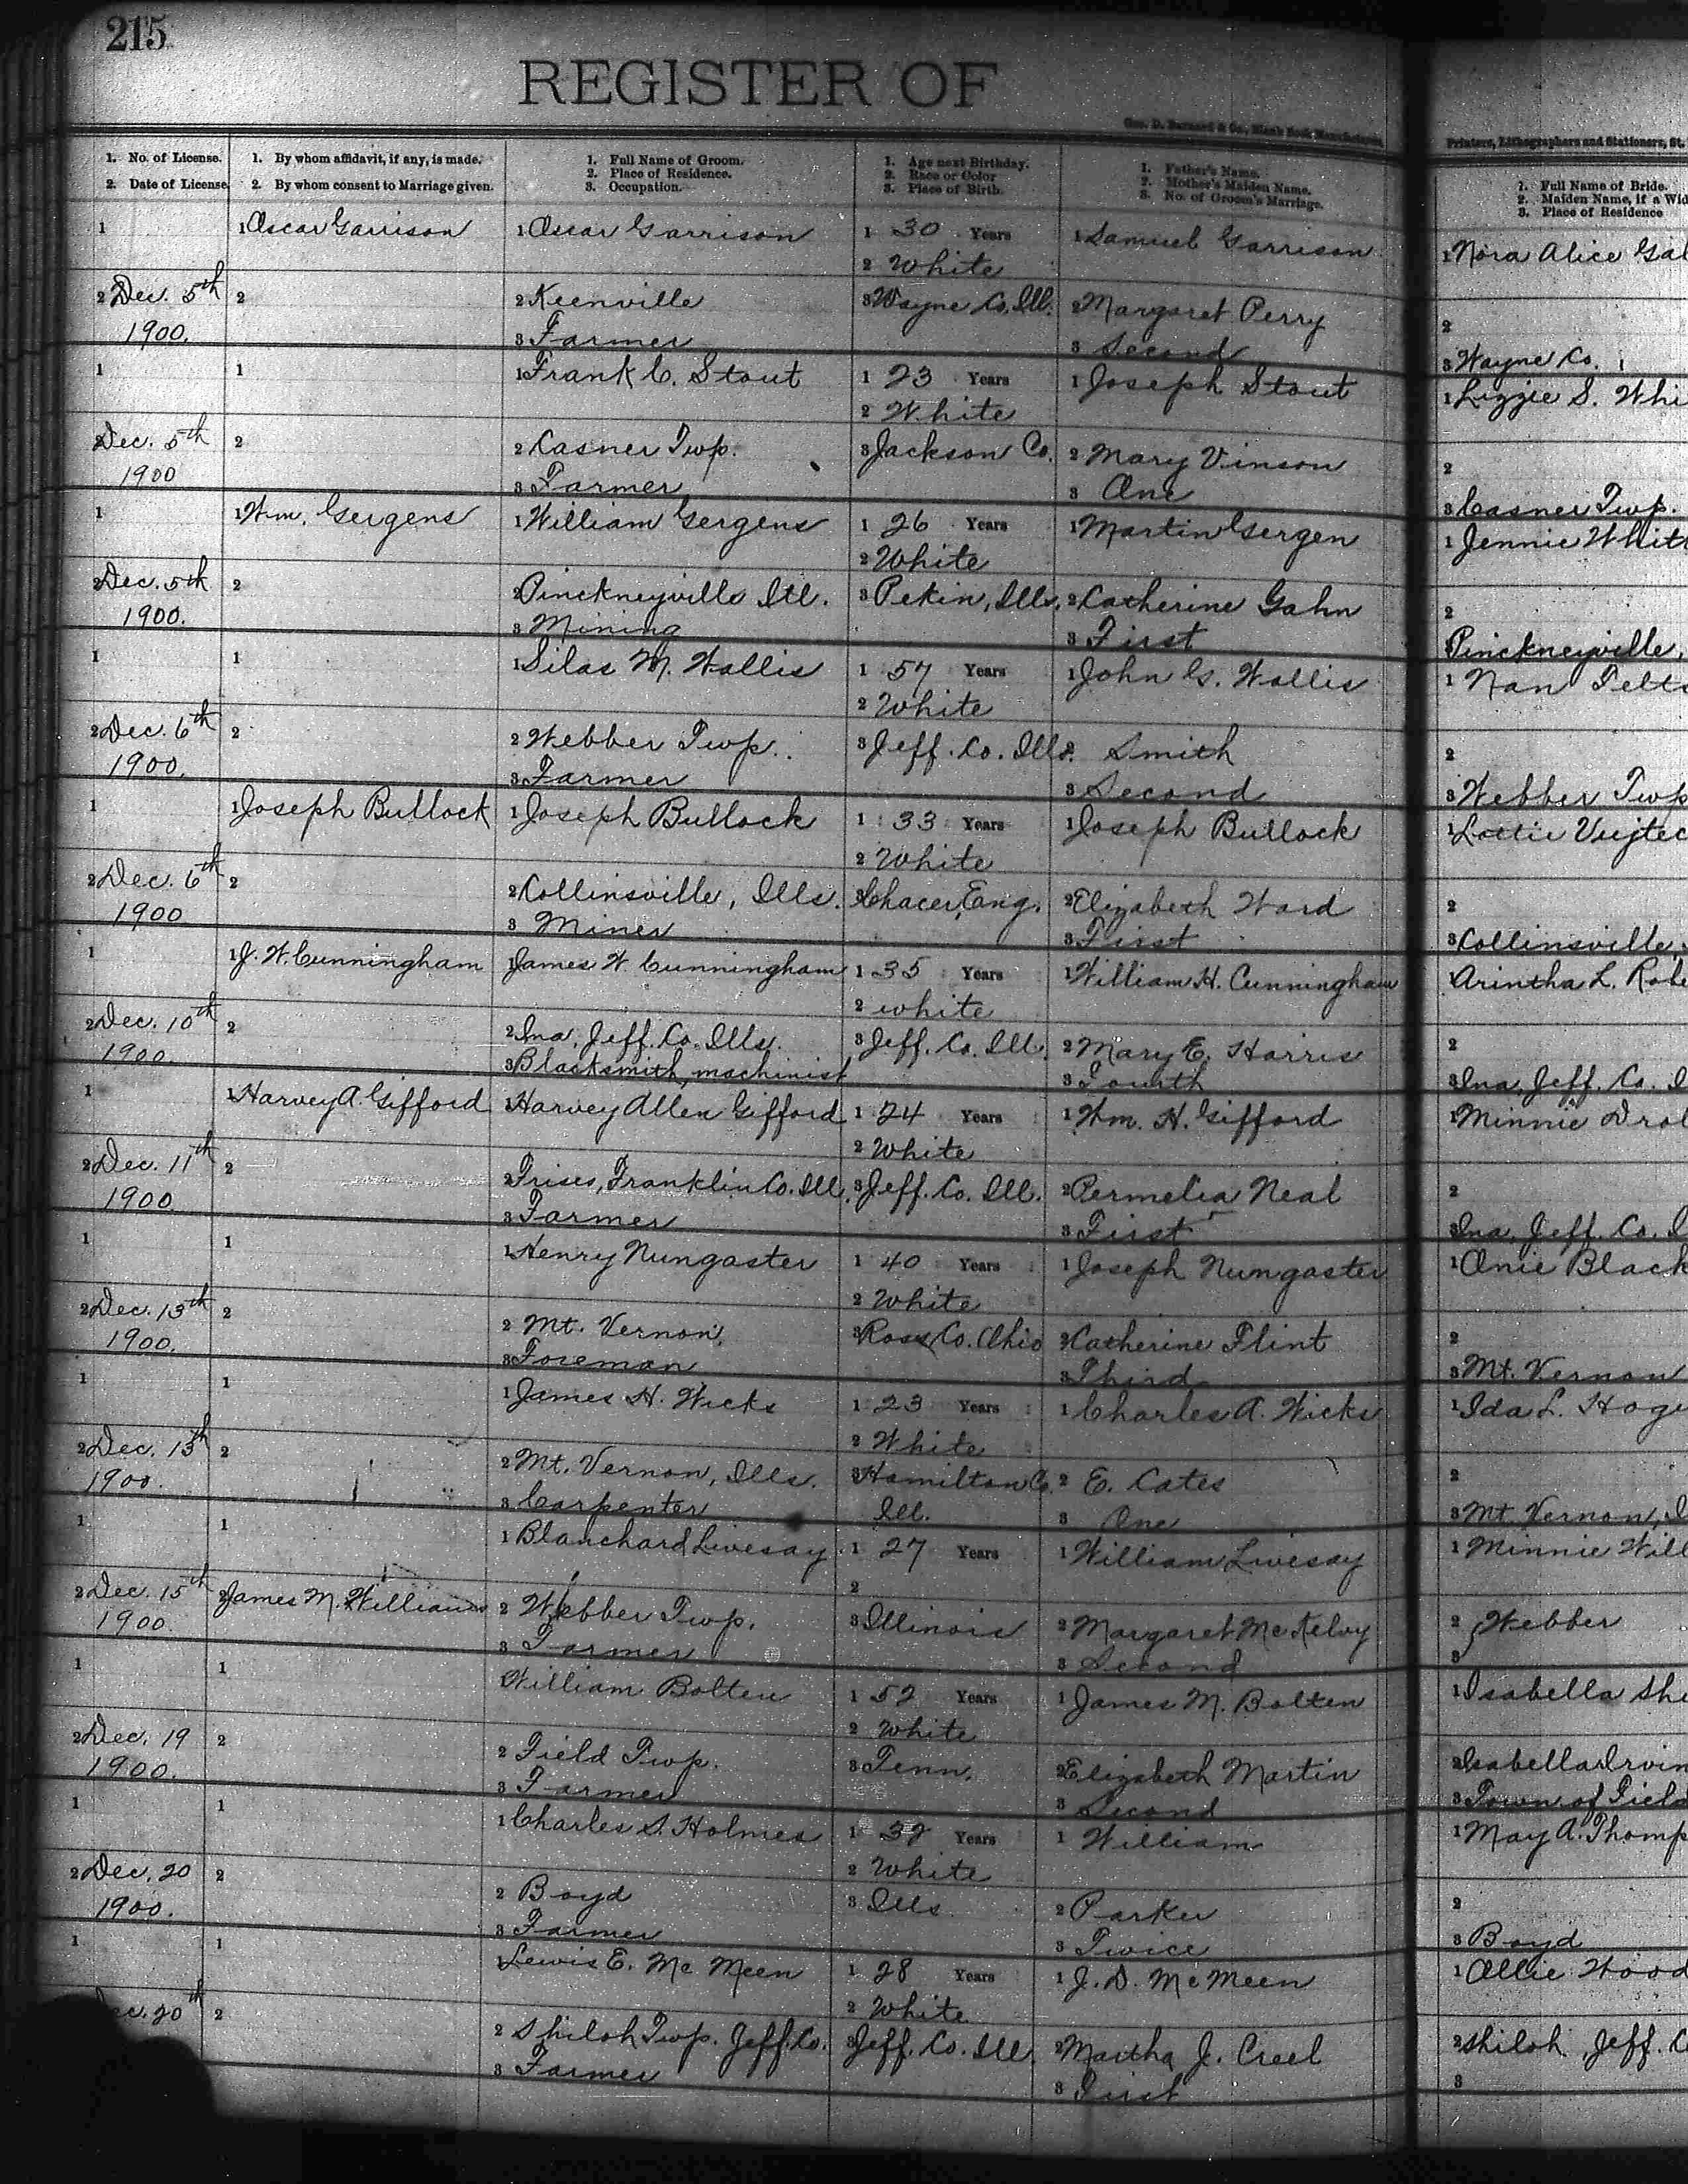 215
REGISTER OF
Geo. D. Barnard & Co., Blank Book Manufacturers,
Printers, Lithographers and Stationers, St.
1. No. of License.
2. Date of License
1. By whom affidavit, if any, is made.
2. By whom consent to Marriage given.
1. Full Name of Groom.
2. Place of Residence.
3. Occupation.
1. Age next Birthday.
2. Race or Color
3. Place of Birth.
1. Father's Name.
2. Mother's Maiden Name.
3. No. of Groom's Marriage.
1. Full Name of Bride.
2. Maiden Name, if a Wid
3. Place of Residence
1
2 Dec. 5th
1900.
1 Oscar Garrison
2
1 Oscar Garrison
2 Keenville
3 Farmer
1 30 Years
2 White
3 Wayne Co. Ill.
1 Samuel Garrison
2 Margaret Perry
3 Second
1 Nora Alice Gal
2
3 Wayne Co.
1
2 Dec. 5th
1900
1
2
1 Frank C. Stout
2 Casner Twp.
3 Farmer
1 23 Years
2 White
3 Jackson Co.
1 Joseph Stout
2 Mary Vinson
3 One
1 Lizzie S. Whi
2
3 Casner Twp.
1
2 Dec. 5th
1900.
1 Wm. Gergens
2
1 William Gergens
2 Pinckneyville Ill.
3 Mining
1 26 Years
2 White
3 Pekin, Ills.
1 Martin Gergen
2 Catherine Gahn
3 First
1 Jennie Whit
2
Pinckneyville,
1
2 Dec. 6th
1900.
1
2
1 Silas M. Wallis
2 Webber Twp.
3 Farmer
1 57 Years
2 White
3 Jeff. Co. Ills.
1 John G. Wallis
2 Smith
3 Second
1 Nan Felts
2
3 Webber Twp
1
2 Dec. 6th
1900
1 Joseph Bullock
2
1 Joseph Bullock
2 Collinsville, Ills.
3 Miner
1 33 Years
2 White
3 Chacer, Eng.
1 Joseph Bullock
2 Elizabeth Ward
3 First
1 Lottie Vujtec
2
3 Collinsville,
1
2 Dec. 10th
1900.
1 J. W. Cunningham
2
1 James W. Cunningham
2 Ina, Jeff. Co. Ills.
3 Blacksmith, machinist
1 35 Years
2 white
3 Jeff. Co. Ill.
1 William H. Cunningham
2 Mary E. Harris
3 Fourth
1 Arintha L. Robe
2
3 Ina, Jeff. Co. I
1
2 Dec. 11th
1900.
1 Harvey A. Gifford
2
1 Harvey Allen Gifford
2 Frises, Franklin Co. Ill.
3 Farmer
1 24 Years
2 White
3 Jeff. Co. Ill.
1 Wm. H. Gifford
2 Permelia Neal
3 First
1 Minnie Drol
2
3 Ina, Jeff. Co. I
1
2 Dec. 13th
1900.
1
2
1 Henry Nungaster
2 Mt. Vernon,
3 Foreman
1 40 Years
2 White
3 Ross Co. Ohio
1 Joseph Nungaster
2 Catherine Flint
3 Third
1 Onie Black
2
3 Mt. Vernon
1
2 Dec. 13th
1900.
1
2
1 James H. Wicks
2 Mt. Vernon, Ills.
3 Carpenter
1 23 Years
2 White
3 Hamilton Co.
Ill.
1 Charles A. Wicks
2 E. Cates
3 One
1 Ida L. Hog
2
3 Mt. Vernon, I
1
2 Dec. 15th
1900.
1
2 James M. Williams
1 Blanchard Livesay
2 Webber Twp.
3 Farmer
1 27 Years
2
3 Illinois
1 William Livesay
2 Margaret McKelvy
3 Second
1 Minnie Will
2 Webber
3
1
2 Dec. 19
1900.
1
2
William Bolten
2 Field Twp.
3 Farmer
1 52 Years
2 White
3 Tenn.
1 James M. Bolten
2 Elizabeth Martin
3 Second
1 Isabella She
2 Isabella Irvin
3 Town of Field
1
2 Dec. 20
1900.
1
2
1 Charles S. Holmes
2 Boyd
3 Farmer
1 32 Years
2 White
3 Ills
1 William
2 Parker
3 Twice
1 May A. Thomp
2
3 Boyd
1
ec. 20th
1
2
1 Lewis E. McMeen
2 Shiloh Twp. Jeff. Co.
3 Farmer
1 28 Years
2 White
3 Jeff. Co. Ill.
1 J. D. McMeen
2 Martha J. Creel
3 First
1 Allie Wood
2 Shiloh, Jeff. C
3